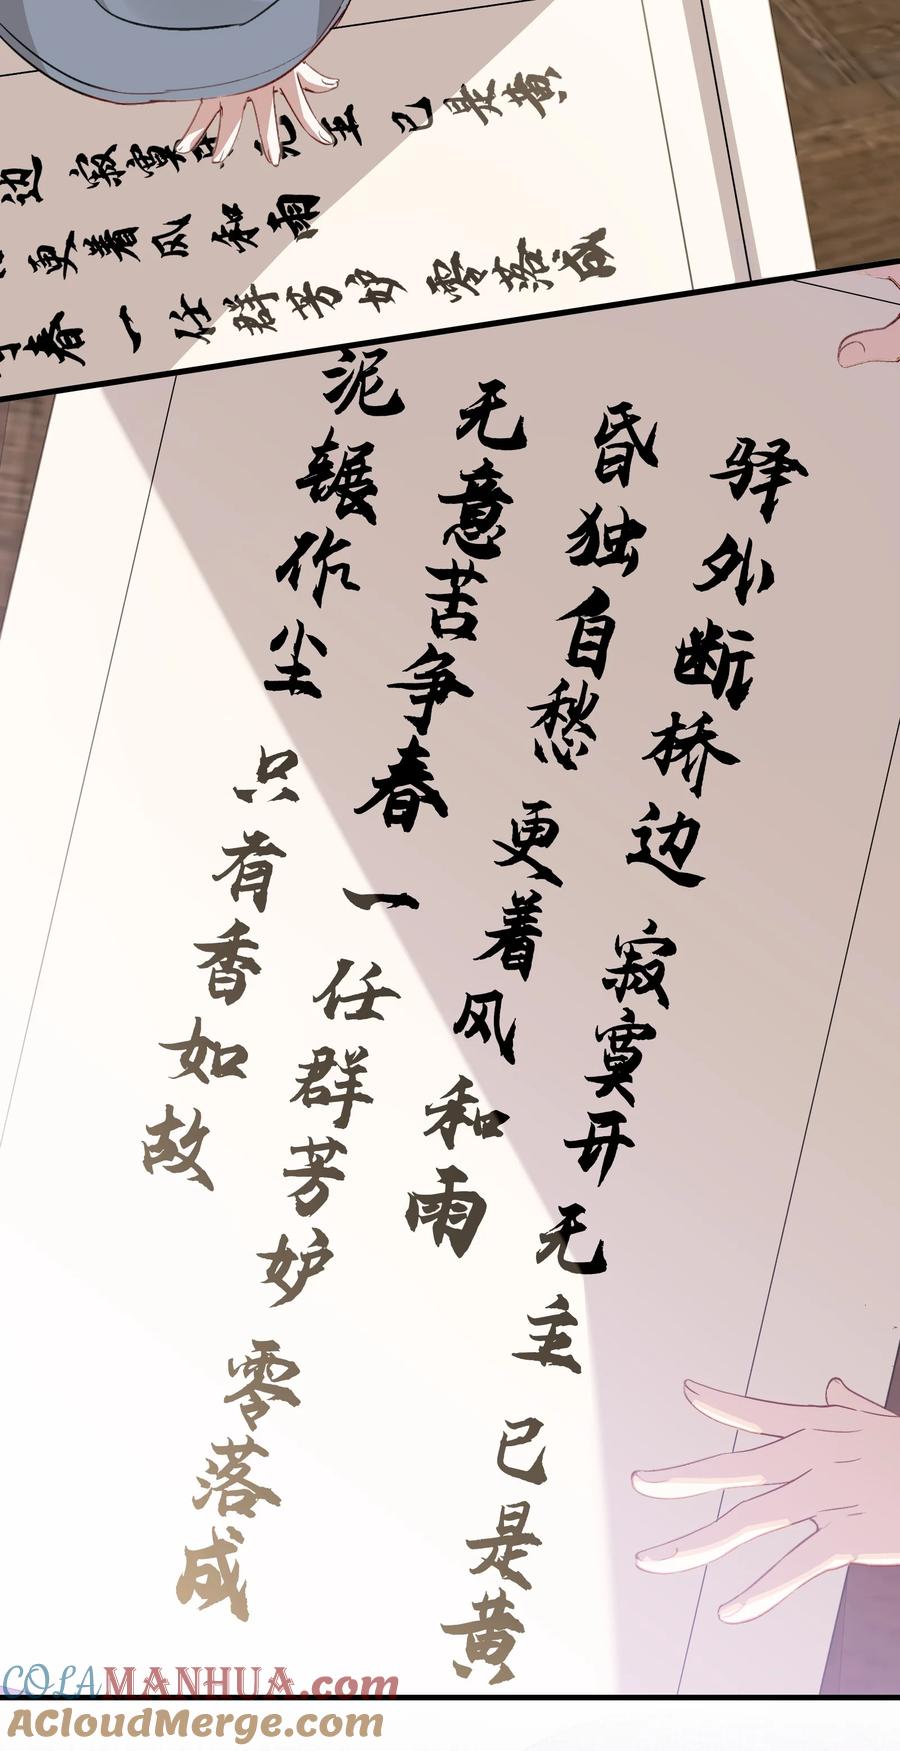 边 寂寞 无主 已是黄
更着风和雨
春 一任群芳妒 零落成
驿外断桥边 寂寞开无主 已是黄
昏独自愁 更着风和雨
无意苦争春 一任群芳妒 零落成
泥辗作尘 只有香如故
COLAMANHUA.com
ACloudMerge.com